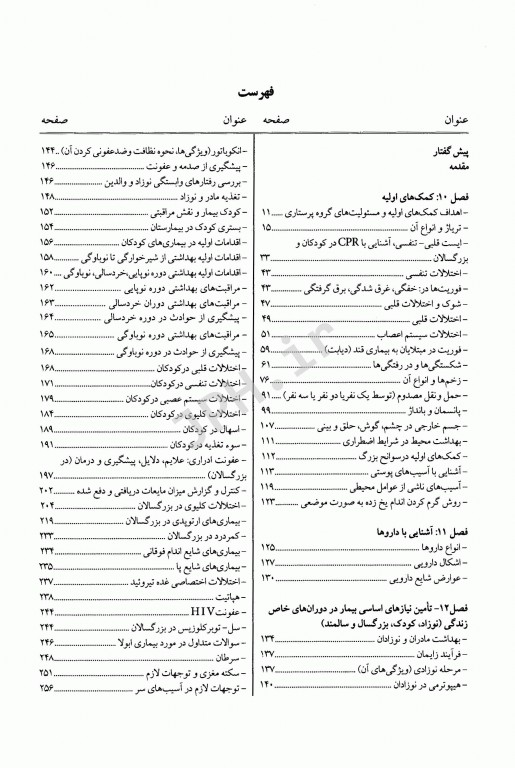 فهرست
عنوان صفحه
پیش گفتار
مقدمه
فصل ۱۰: کمک‌های اولیه
- اهداف کمک‌های اولیه و مسئولیت‌های گروه پرستاری ....۱۱
- تریاژ و انواع آن ....۱۵
- ایست قلبی- تنفسی، آشنایی با CPR در کودکان و
بزرگسالان ....۳۳
- اختلالات تنفسی ....۴۳
- فوریت‌ها در: خفگی، غرق شدگی، برق گرفتگی ....۴۳
- شوک و اختلالات قلبی ....۴۷
- اختلالات قلبی ....۴۹
- اختلالات سیستم اعصاب ....۵۱
- فوریت در مبتلایان به بیماری قند (دیابت) ....۵۹
- شکستگی‌ها و در رفتگی‌ها ....۶۱
- زخم‌ها و انواع آن ....۷۶
- حمل و نقل مصدوم (توسط یک نفریا دو نفر یا سه نفر) ....۹۱
- پانسمان و بانداژ ....۹۹
- جسم خارجی در چشم، گوش، حلق و بینی ....۱۰۷
- بهداشت محیط در شرایط اضطراری ....۱۱۱
- کمک‌های اولیه درسوانح بزرگ ....۱۱۲
- آشنایی با آسیب‌های پوستی ....۱۱۳
- آسیب‌های ناشی از عوامل محیطی ....۱۱۹
- روش گرم کردن اندام یخ زده به صورت موضعی ....۱۲۳
فصل ۱۱: آشنایی با داروها
- انواع داروها ....۱۲۵
- اشکال دارویی ....۱۲۷
- عوارض شایع دارویی ....۱۳۰
فصل۱۲- تأمین نیازهای اساسی بیمار در دوران‌های خاص
زندگی (نوزاد، کودک، بزرگسال و سالمند)
- بهداشت مادران و نوزادان ....۱۳۴
- فرآیند زایمان ....۱۳۷
- مرحله نوزادی (ویژگی‌های آن) ....۱۳۷
- هیپوترمی در نوزادان ....۱۴۰
عنوان صفحه
- انکوباتور(ویژگی‌ها، نحوه نظافت وضدعفونی کردن آن) ..۱۴۴
- پیشگیری از صدمه و عفونت ....۱۴۶
- بررسی رفتارهای وابستگی نوزاد و والدین ....۱۴۶
- تغذیه مادر و نوزاد ....۱۴۸
- کودک بیمار و نقش مراقبتی ....۱۵۲
- بستری کودک در بیمارستان ....۱۵۴
- اقدامات اولیه در بیماری‌های کودکان ....۱۵۶
- اقدامات اولیه بهداشتی از شیرخوارگی تا نوباوگی ....۱۵۸
- اقدامات اولیه بهداشتی دوره نوپایی،خردسالی، نوباوگی ..۱۶۰
- مراقبت‌های بهداشتی دوره نوپایی ....۱۶۲
- مراقبت‌های بهداشتی دوران خردسالی ....۱۶۳
- پیشگیری از حوادث در دوره خردسالی ....۱۶۴
- مراقبت‌های بهداشتی دوره نوباوگی ....۱۶۵
- پیشگیری از حوادث در دوره نوباوگی ....۱۶۸
- اختلالات قلبی درکودکان ....۱۶۸
- اختلالات تنفسی درکودکان ....۱۷۱
- اختلالات سیستم عصبی درکودکان ....۱۷۹
- اختلالات کلیوی در کودکان ....۱۸۴
- اسهال در کودکان ....۱۸۹
- سوء تغذیه درکودکان ....۱۹۱
- عفونت ادراری: علایم، دلایل، پیشگیری و درمان (در
بزرگسالان) ....۱۹۷
- کنترل و گزارش میزان مایعات دریافتی و دفع شده ....۲۰۲
- اختلالات کلیوی در بزرگسالان ....۲۰۴
- بیماری‌های ارتوپدی در بزرگسالان ....۲۱۹
- کمردرد در بزرگسالان ....۲۳۳
- بیماری‌های شایع اندام فوقانی ....۲۳۴
- بیماری‌های شایع پا ....۲۳۵
- اختلالات اختصاصی غده تیروئید ....۲۳۷
- هپاتیت ....۲۳۸
- عفونت HIV ....۲۴۴
- سل- توبرکلوزیس در بزرگسالان ....۲۴۴
- سوالات متداول در مورد بیماری ابولا ....۲۴۶
- سرطان ....۲۴۸
- سکته مغزی و توجهات لازم ....۲۵۱
- توجهات لازم در آسیب‌های سر ....۲۵۶